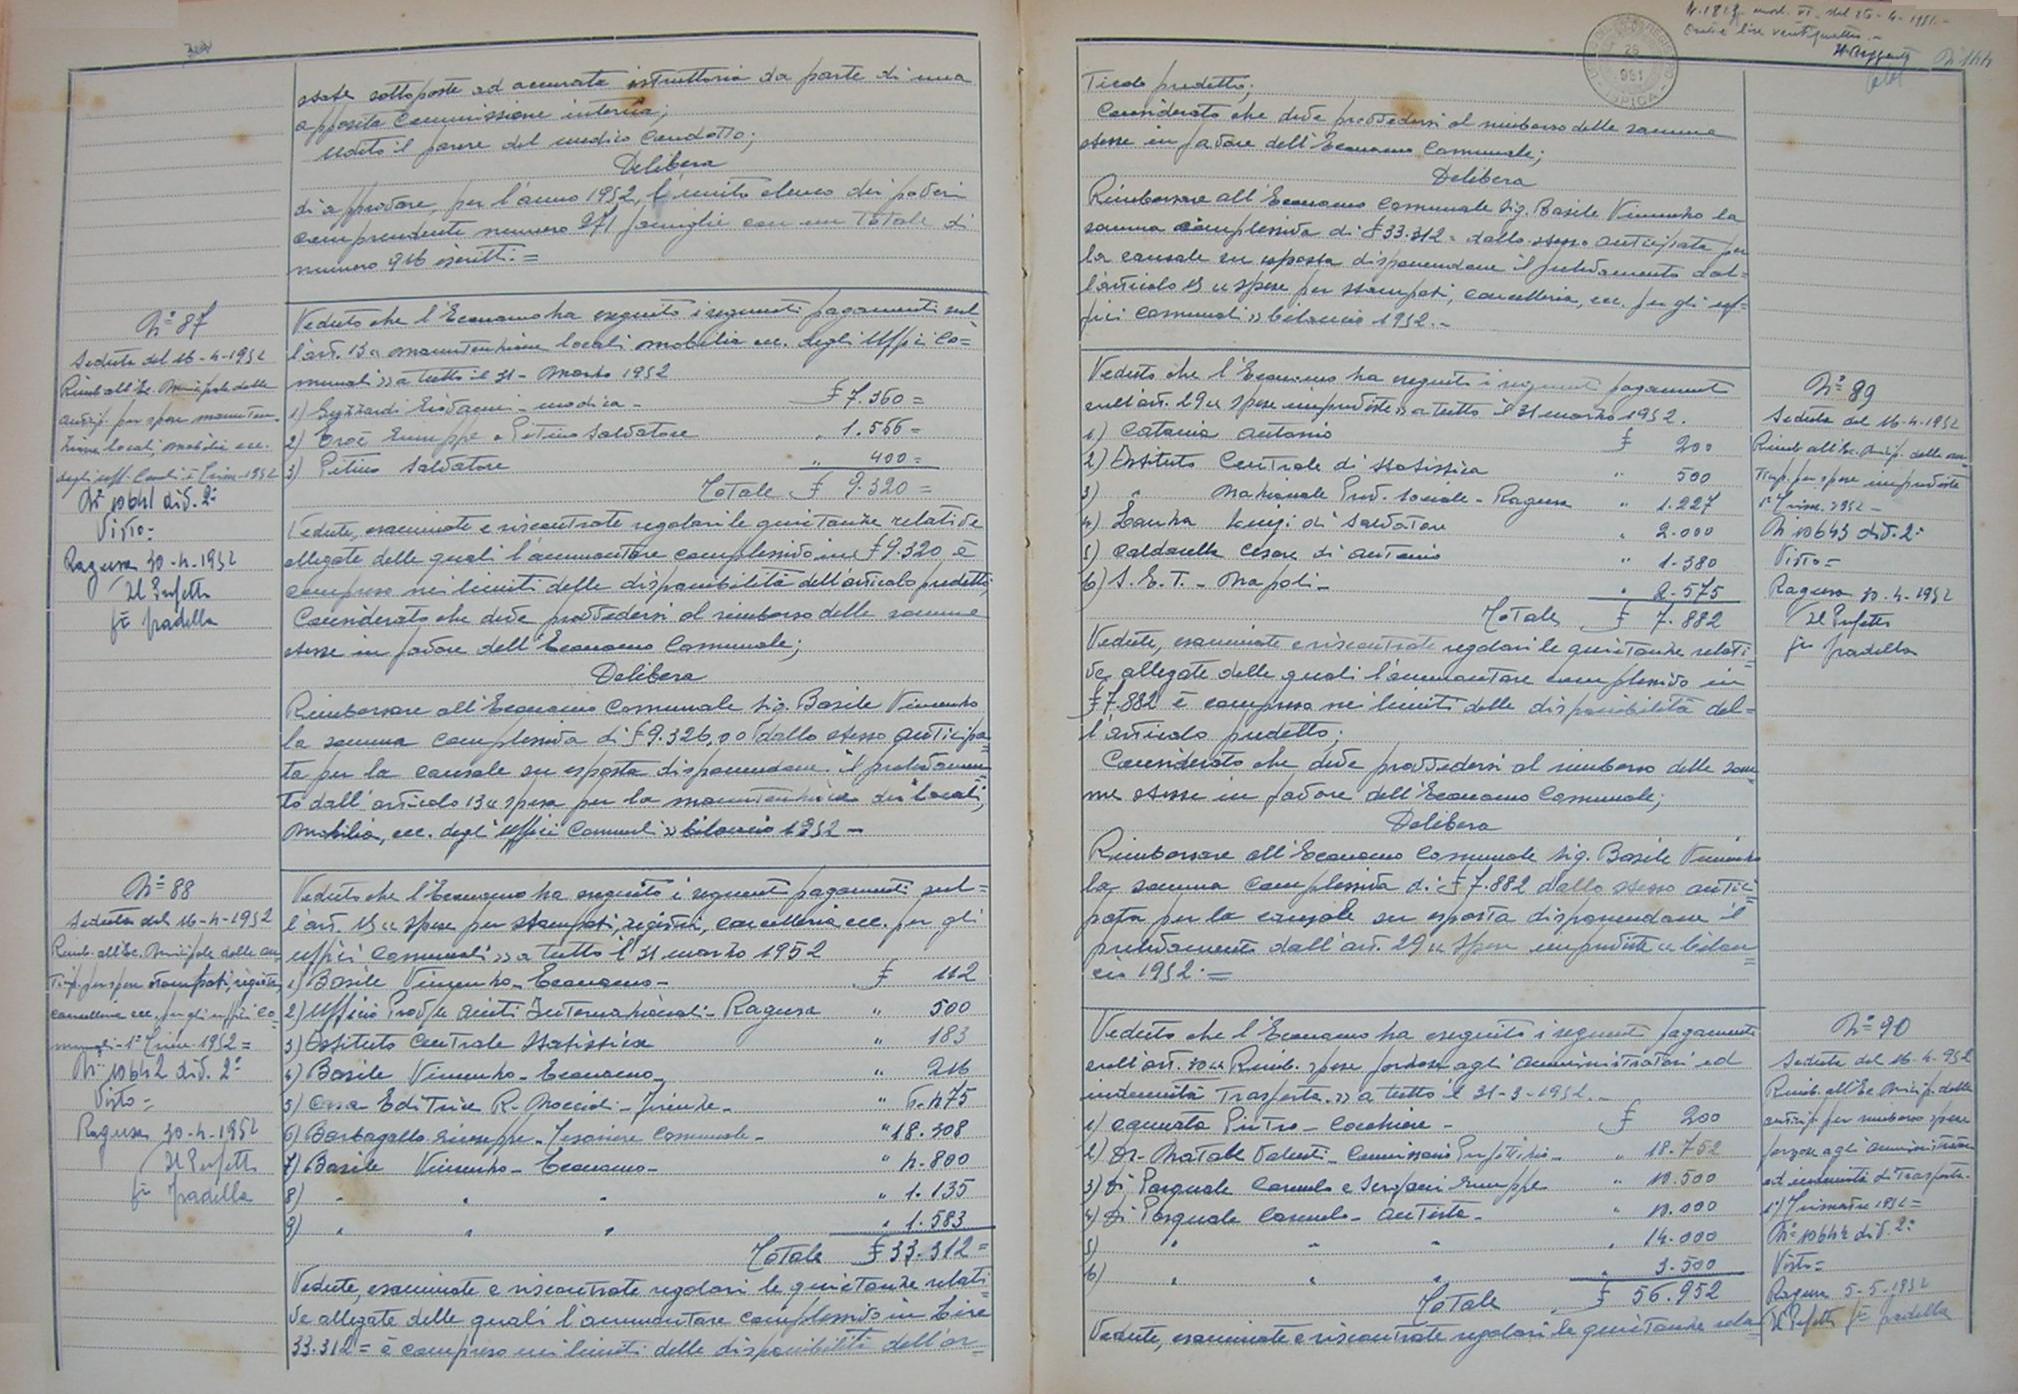 state sottoposte ad accurata istruttoria da parte di una
apposita Commissione interna;
Udito il parere del medico Condotto;
Delibera
di approvare, per l'anno 1952, l'unito elenco dei poveri
comprendente numero 271 famiglie con un Totale di
numero 916 iscritti.=
N° 87
Seduta del 16-4-1952
Rimb. all'Ec. Municipale delle
antcip. per spese manuten
zione locali, mobilia ecc.
degli uff. Com.li 1° Trim. 1952
N° 10641 div. 2ª
Visto=
Ragusa 30-4-1952
Il Prefetto
f° Pradella
Veduto che l'Economo ha eseguito i seguenti pagamenti sul
l'art. 13 "manutenzione locali mobilia ecc. degli Uffici Co=
munali" a tutto il 31- Marzo 1952
1) Giovanni - Modica - £ 7.360=
2) Giuseppe e Pitino Salvatore " 1.566=
3) Pitino Salvatore " 400=
Totale £ 9.320=
Vedute, esaminate e riscontrate regolari le quietanze relative
allegate delle quali l'ammontare complessivo in £ 9.320 è
compreso nei limiti delle disponibilità dell'articolo predetto;
Considerato che deve provvedersi al rimborso delle somme
stesse in favore dell'Economo Comunale;
Delibera
Rimborsare all'Economo Comunale Sig. Basile Vincenzo
la somma complessiva di £ 9.326,00 dallo stesso anticipa=
ta per la causale su esposta disponendone il prelevamen=
to dall'articolo 13 "spese per la manutenzione dei locali,
mobilia, ecc. degli Uffici Comunali" bilancio 1952 -
N° 88
Seduta del 16-4-1952
Rimb. all'Ec. Mun.pale delle an
ticip. per spese stampati, registri,
cancelleria ecc. per gli uffici Co=
munali - 1° Trim. 1952=
N° 10642 div. 2ª
Visto=
Ragusa 30-4-1952
Il Prefetto
f° Pradella
Veduto che l'Economo ha eseguito i seguenti pagamenti sul=
l'art. 15 "spese per stampati, registri, cancelleria ecc. per gli
uffici Comunali" a tutto il 31 marzo 1952
1) Basile Vincenzo - Economo - £ 112
2) Ufficio Prov/le Aiuti Internazionali - Ragusa " 500
3) Istituto Centrale Statistica " 183
4) Basile Vincenzo - Economo - " 216
5) Casa Editrice R. Noccioli - Firenze - " 6.475
6) Barbagallo Giuseppe - Tesoriere Comunale - " 18.308
7) Basile Vincenzo - Economo - " 4.800
8) " " " " 1.135
9) " " " " 1.583
Totale £ 33.312=
Vedute, esaminate e riscontrate regolari le quietanze relati
ve allegate delle quali l'ammontare complessivo in Lire
33.312= è compreso nei limiti delle disponibilità dell'ar=
N. 1813 mod. VI. del 26-4-1951.-
Esatte lire ventiquattro.-
Il Reggente
N 144
26
951
ISPICA
ticolo predetto;
Considerato che deve provvedersi al rimborso delle somme
stesse in favore dell'Economo Comunale;
Delibera
Rimborsare all'Economo Comunale Sig. Basile Vincenzo la
somma complessiva di £ 33.312= dallo stesso anticipata per
la causale su esposta disponendone il prelevamento dal=
l'articolo 15 "spese per stampati, cancelleria, ecc. per gli uf=
fici Comunali" bilancio 1952.-
Veduto che l'Economo ha eseguito i seguenti pagamenti
sull'art. 29 "spese impreviste" a tutto il 31 marzo 1952.
1) Catania Antonio £ 200
2) Istituto Centrale di Statistica " 500
3) " Nazionale Prev. Sociale - Ragusa " 1.227
4) Lauria Luigi di Salvatore " 2.000
5) Caldarella Cesare di Antonio " 1.380
6) S. E. T. - Napoli - " 2.575
Totale £ 7.882
Vedute, esaminate e riscontrate regolari le quietanze relati=
ve allegate delle quali l'ammontare complessivo in
£ 7.882 è compreso nei limiti delle disponibilità del=
l'articolo predetto;
Considerato che deve provvedersi al rimborso delle som
me stesse in favore dell'Economo Comunale;
Delibera
Rimborsare all'Economo Comunale Sig. Basile Vincenzo
la somma complessiva di £ 7.882 dallo stesso antici
pata per la causale su esposta disponendone il
prelevamento dall'art. 29 "Spese impreviste" bilan
cio 1952.=
N° 89
Seduta del 16-4-1952
Rimb. all'Ec. Mun.p. delle an=
ticip. per spese impreviste
1° Trim. 1952 -
N 10643 div. 2ª
Visto=
Ragusa 30-4-1952
Il Prefetto
f° Pradella
Veduto che l'Economo ha eseguito i seguenti pagamenti
sull'art. 30 "Rimb. spese forzose agli amministratori ed
indennità Trasporta." a tutto il 31-3-1952.-
1) Agosta Pietro - Cocchiere - £ 200
2) Dr. Natale Valenti - Commissario Prefettizio - " 18.752
3) Di Pasquale Carmelo e Giuseppe " 10.500
4) Di Pasquale Carmelo - Autista - " 10.000
5) " " " " 14.000
6) " " " " 3.500
Totale £ 56.952
Vedute, esaminate e riscontrate regolari le quietanze rela
N° 90
Seduta del 16-4-952
Rimb. all'Ec Municip. delle
anticip. per rimborso spese
forzose agli amministratori
ed indennità di Trasporta.
1°/ Trimestre 1952=
N° 10644 div. 2ª
Visto=
Ragusa 5-5-1952
Il Prefetto f° Pradella